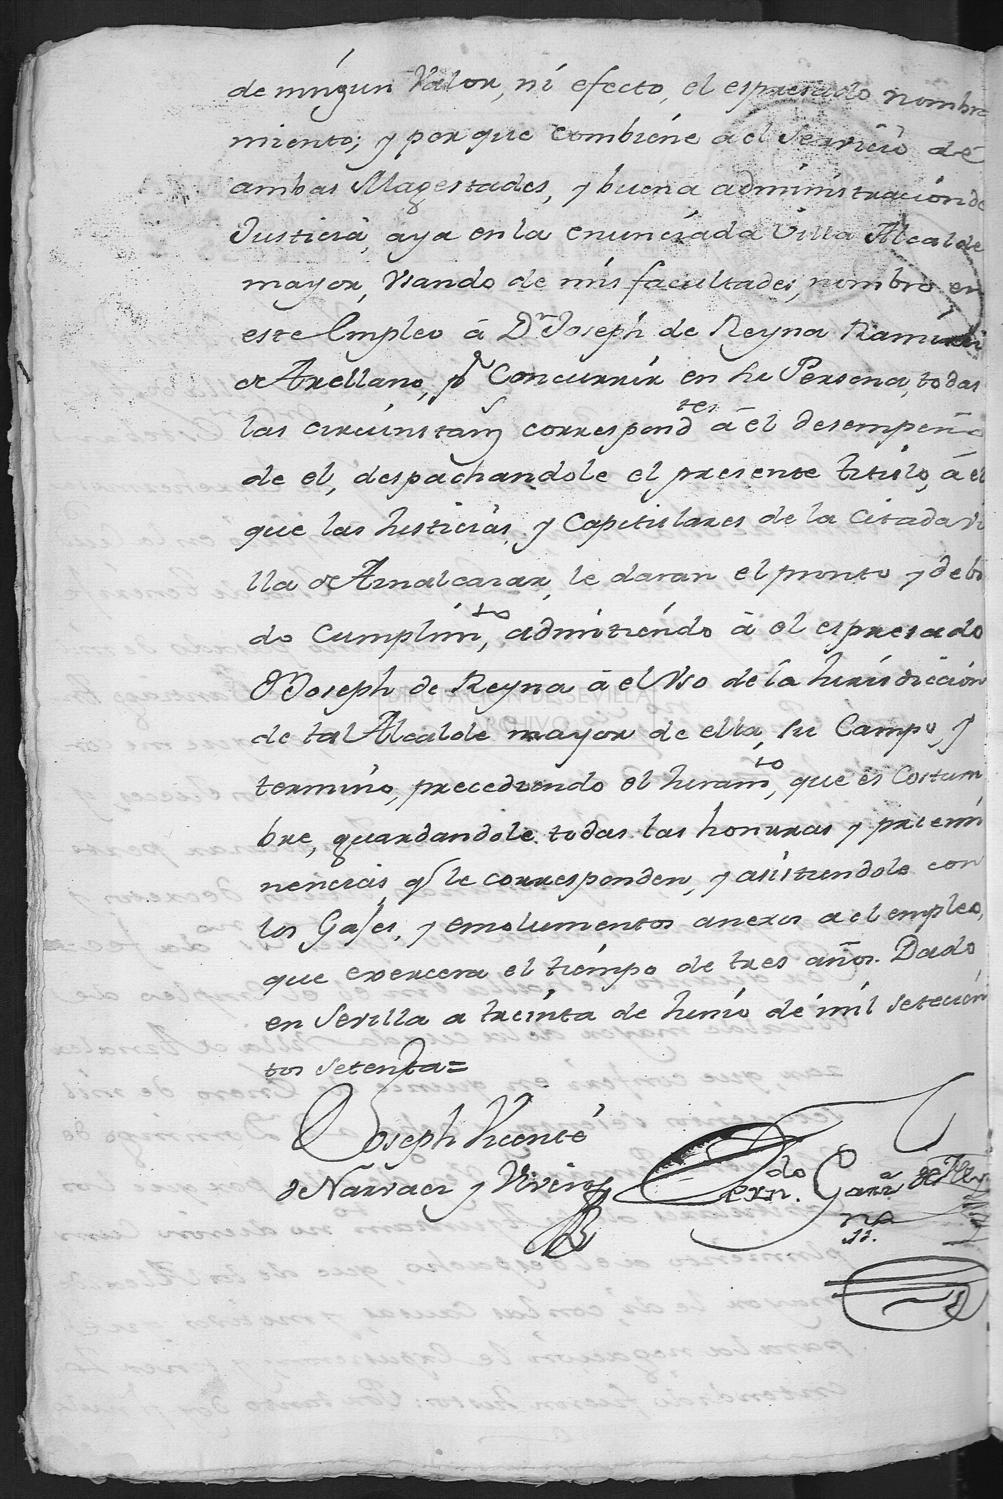 de ningun Valor, ni efecto, el espresado nombra
miento; y porque combiene a el Servicio de
ambas Magestades, y buena administracion de
Justicia, aya en la enunciada Villa Alcalde
mayor, Usando de mis facultades, nombro en
este Empleo â Dn Joseph de Reyna Ramirez
de Arellano, pr Concurrir en su Persona, todas
las circunstans correspondtes â el desempeño
de el, despachandole el presente titulo, â el
que las Justicias, y Capitulares de la Citada Vi
lla de Aznalcazar, le daran el pronto y debi
do Cumplimto, admitiendo â el espresado
Dn Joseph de Reyna â el Uso de la Jurisdicion
de tal Alcalde mayor de ella, su Campo, y
termino, precediendo el Juramto, que es Costum
bre, guardandole todas las honrras y preemi
nencias, qe le corresponden, y asistiendole con
los Gajes, y emolumentos anexos a el empleo,
que exercera el tiempo de tres años. Dado
en Sevilla a treinta de Junio de mil setecien
tos setenta=
Joseph Vicente
de Narvaez y Vivero
Ferndo Garz de
DIPUTACION DE SEVILLA
ARCHIVO